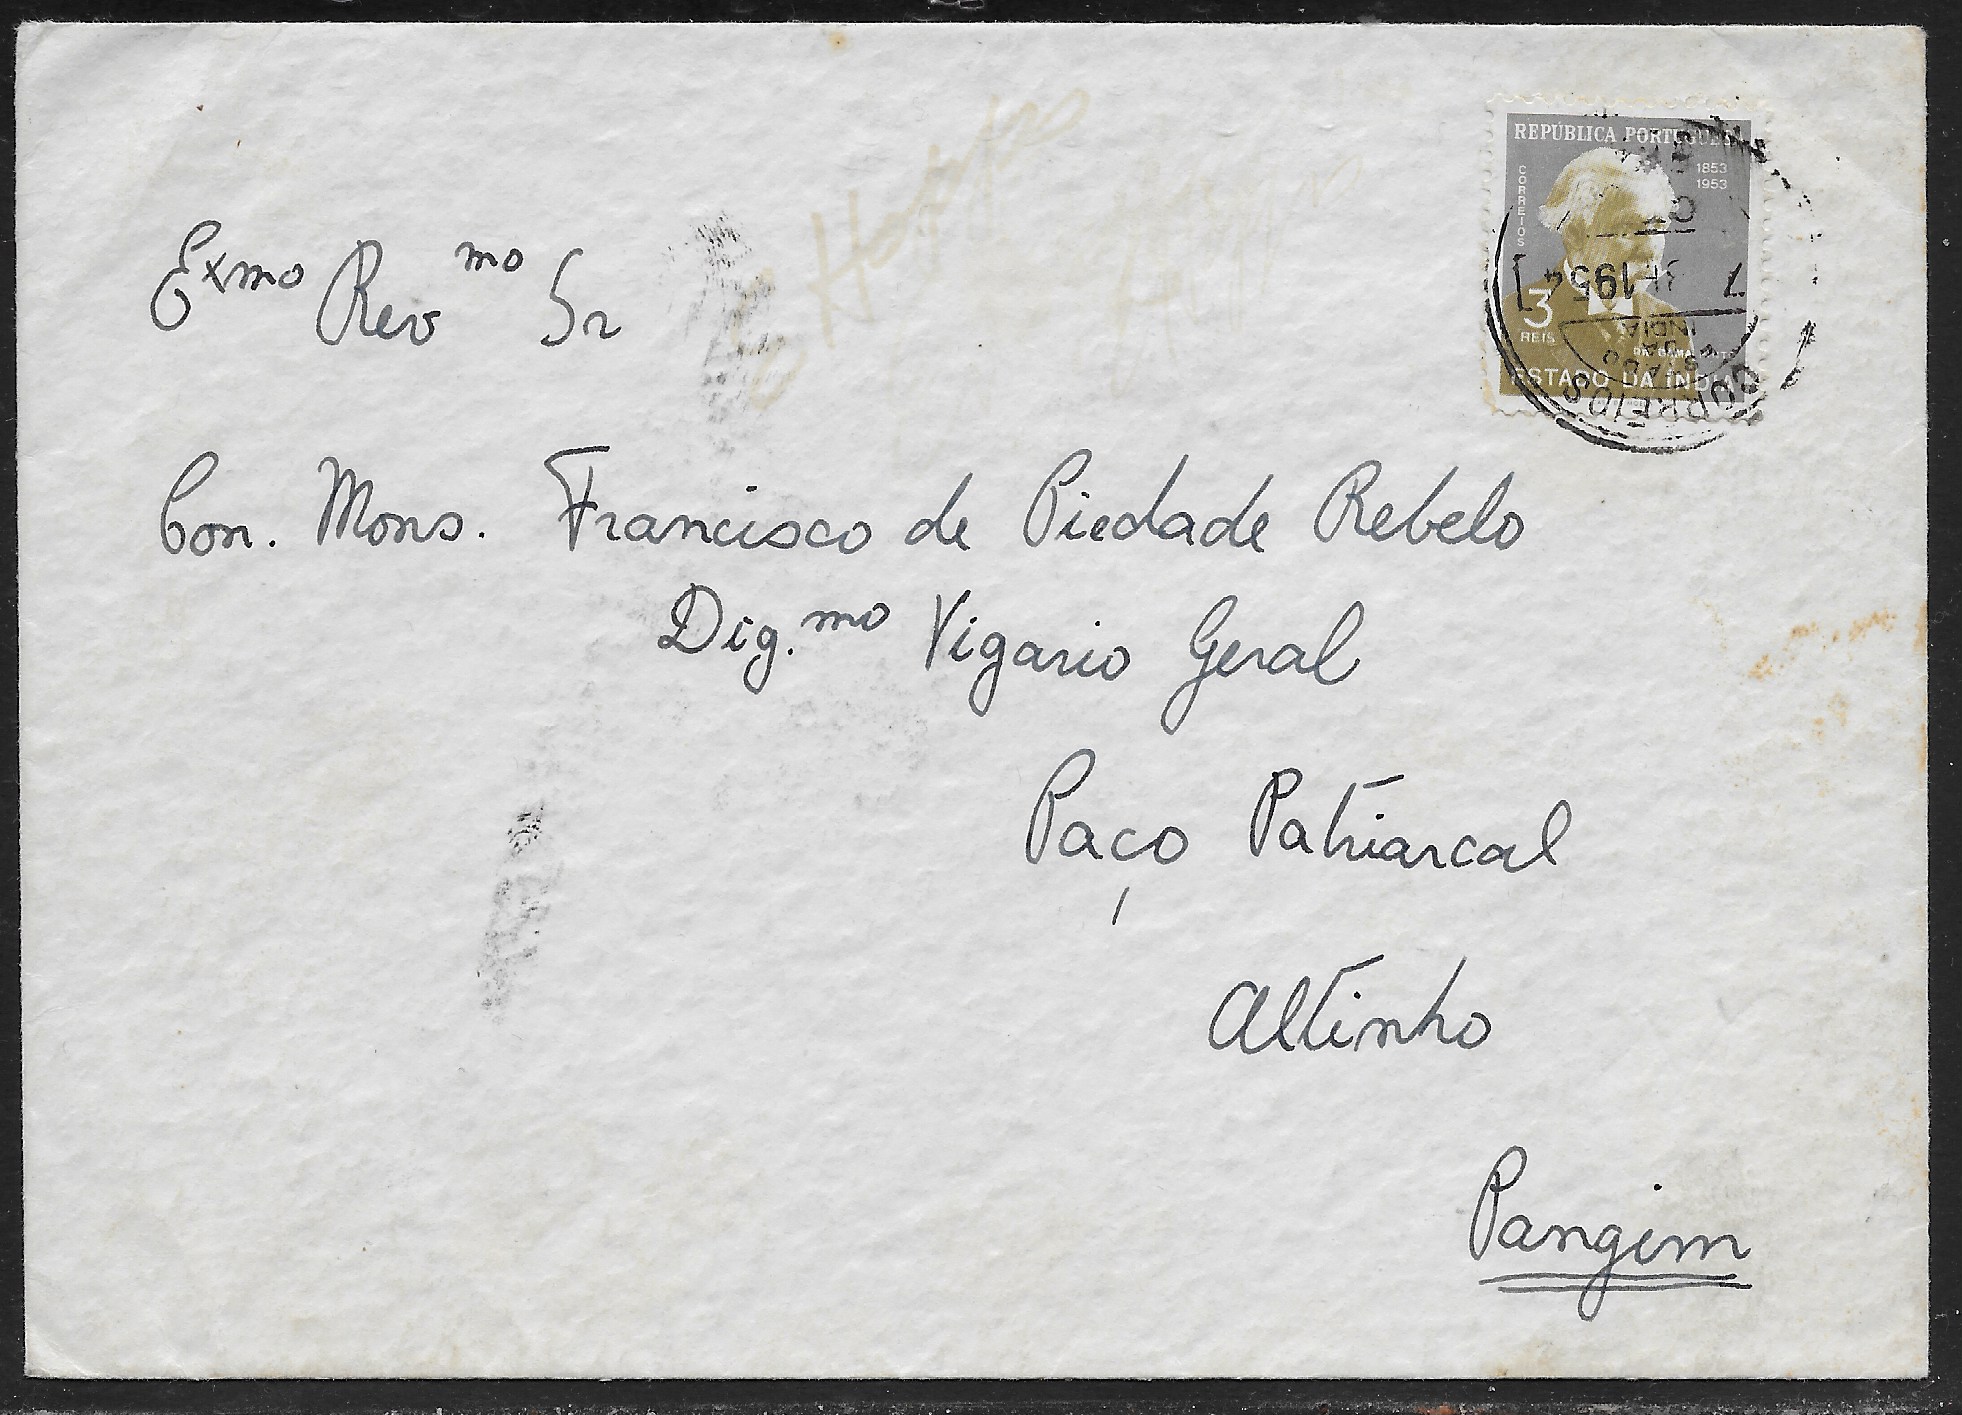 REPÚBLICA PORTUGUESA
CORREIOS
1853
1953
3
REIS
DR. GAMA PINTO
ESTADO DA ÍNDIA
1954
CORREIOS
ESTADO DA
INDIA
Exmo Revmo Sr
Con. Mons. Francisco de Piedade Rebelo
Dig.mo Vigario Geral
Paço Patriarcal
Altinho
Pangim